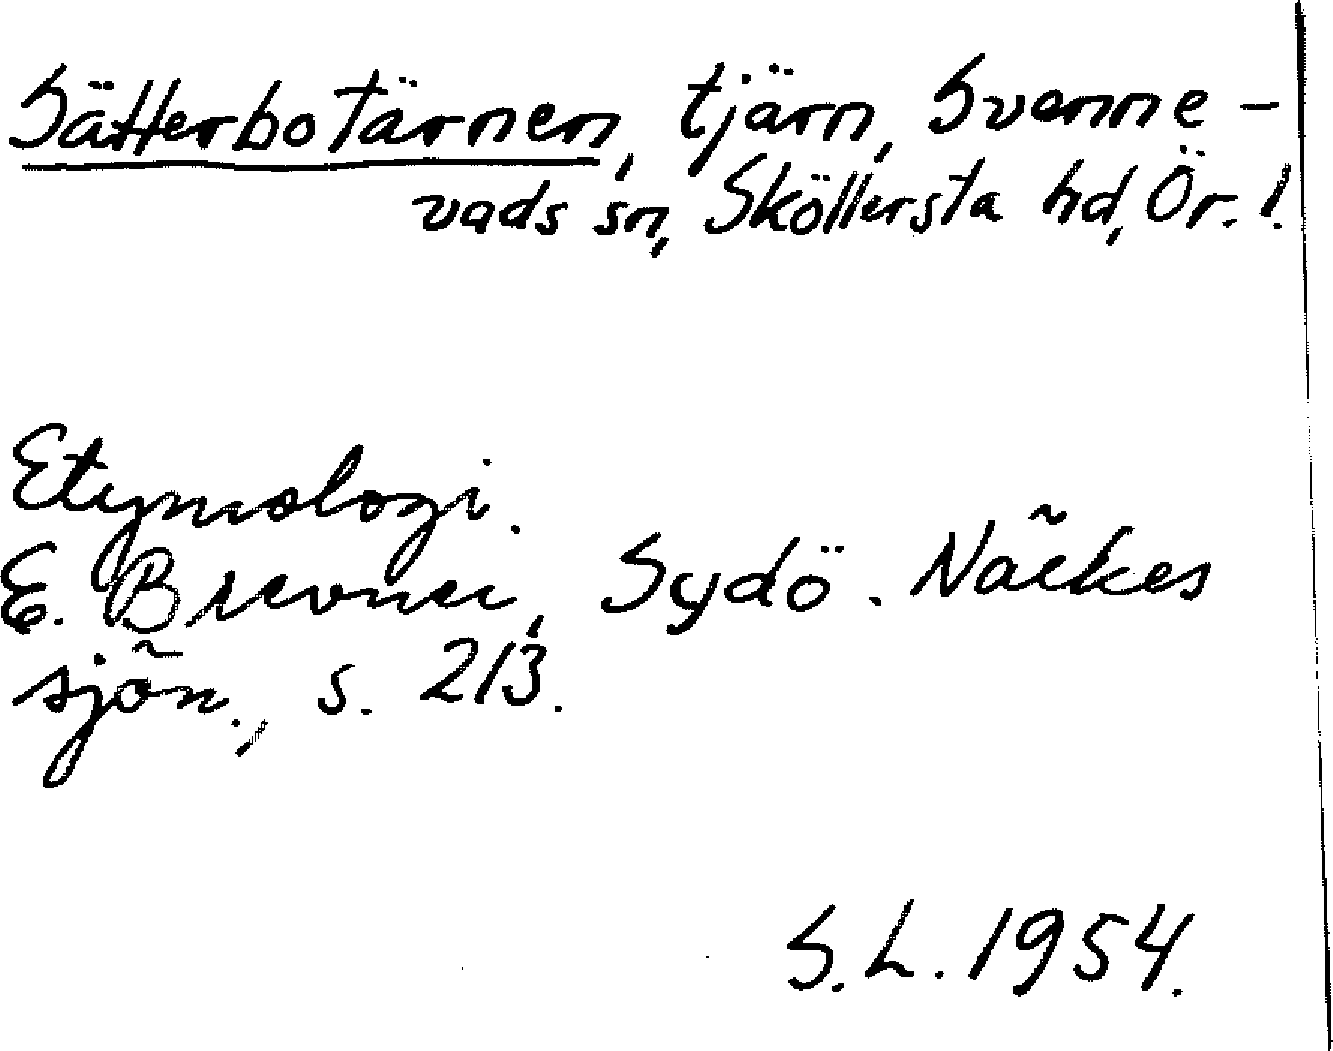 Sätterbotärnen, tjärn, Svenne-
vads sn, Sköllersta hd, Ör. l.
Etymologi.
E. Brevner, Sydö. Näkes
sjön., s. 213.
S.L. 1954.